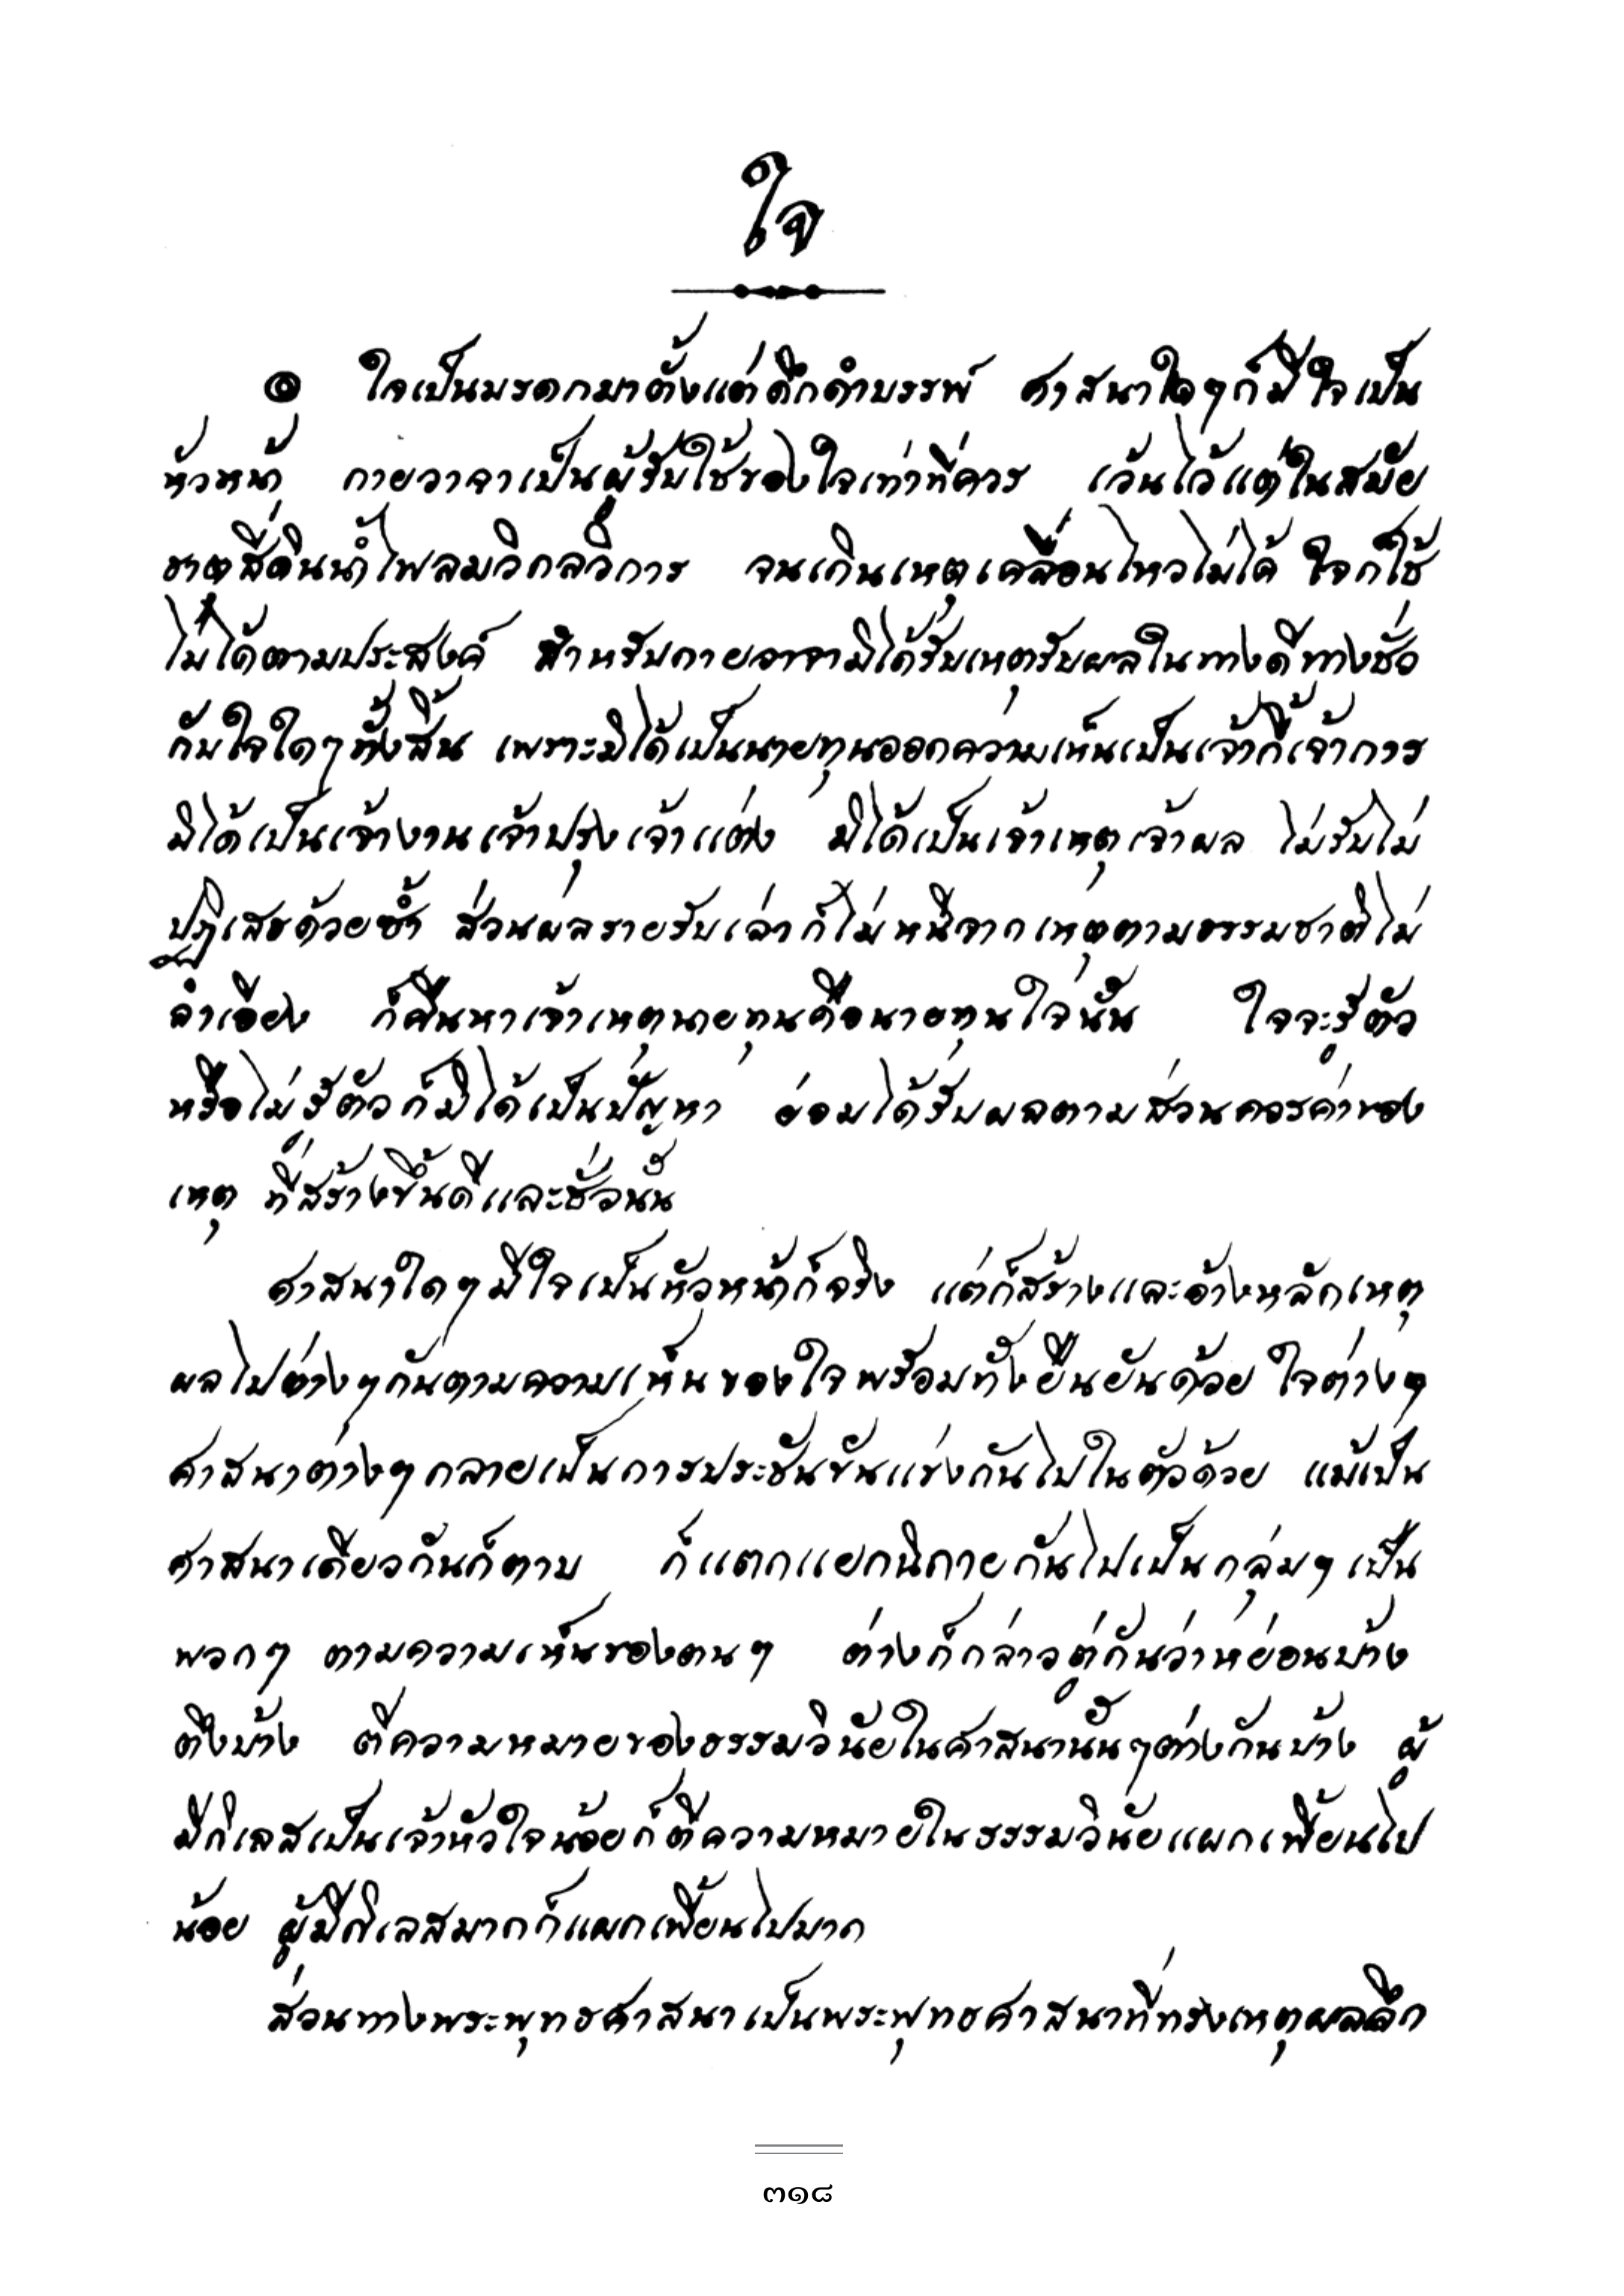 ใจ
๏ ใจเป็นมรดกมาตั้งแต่ดึกดำบรรพ์ ศาสนาใดๆก็มีใจเป็น
หัวหน้า กายวาจาเป็นผู้รับใช้ของใจเท่าที่ควร เว้นไว้แต่ในสมัย
ธาตุสี่ดินน้ำไฟลมวิกลวิการ จนเกินเหตุเคลื่อนไหวไม่ได้ ใจก็ใช้
ไม่ได้ตามประสงค์ สำหรับกายวาจามิได้รับเหตุรับผลในทางดีทางชั่ว
กับใจใดๆทั้งสิ้น เพราะมิได้เป็นนายทุนออกความเห็นเป็นเจ้ากี้เจ้าการ
มิได้เป็นเจ้างานเจ้าปรุงเจ้าแต่ง มิได้เป็นเจ้าเหตุเจ้าผล ไม่รับไม่
ปฏิเสธด้วยซ้ำ ส่วนผลรายรับเล่าก็ไม่หนีจากเหตุตามธรรมชาติไม่
ลำเอียง ก็คืนหาเจ้าเหตุนายทุนคือนายทุนใจนั้น ใจจะรู้ตัว
หรือไม่รู้ตัวก็มิได้เป็นปัญหา ย่อมได้รับผลตามส่วนควรค่าของ
เหตุ ที่สร้างขึ้นดีและชั่วนั้น
ศาสนาใดๆมีใจเป็นหัวหน้าก็จริง แต่ก็สร้างและอ้างหลักเหตุ
ผลไปต่างๆกันตามความเห็นของใจพร้อมทั้งยืนยันด้วย ใจต่างๆ
ศาสนาต่างๆกลายเป็นการประชันขันแข่งกันไปในตัวด้วย แม้เป็น
ศาสนาเดียวกันก็ตาม ก็แตกแยกนิกายกันไปเป็นกลุ่มๆเป็น
พวกๆ ตามความเห็นของตนๆ ต่างก็กล่าวตู่กันว่าหย่อนบ้าง
ตึงบ้าง ตีความหมายของธรรมวินัยในศาสนานั้นๆต่างกันบ้าง ผู้
มีกิเลสเป็นเจ้าหัวใจน้อยก็ตีความหมายในธรรมวินัยแผกเพี้ยนไป
น้อย ผู้มีกิเลสมากก็แผกเพี้ยนไปมาก
ส่วนทางพระพุทธศาสนาเป็นพระพุทธศาสนาที่ทรงเหตุผลลึก
๓๑๘